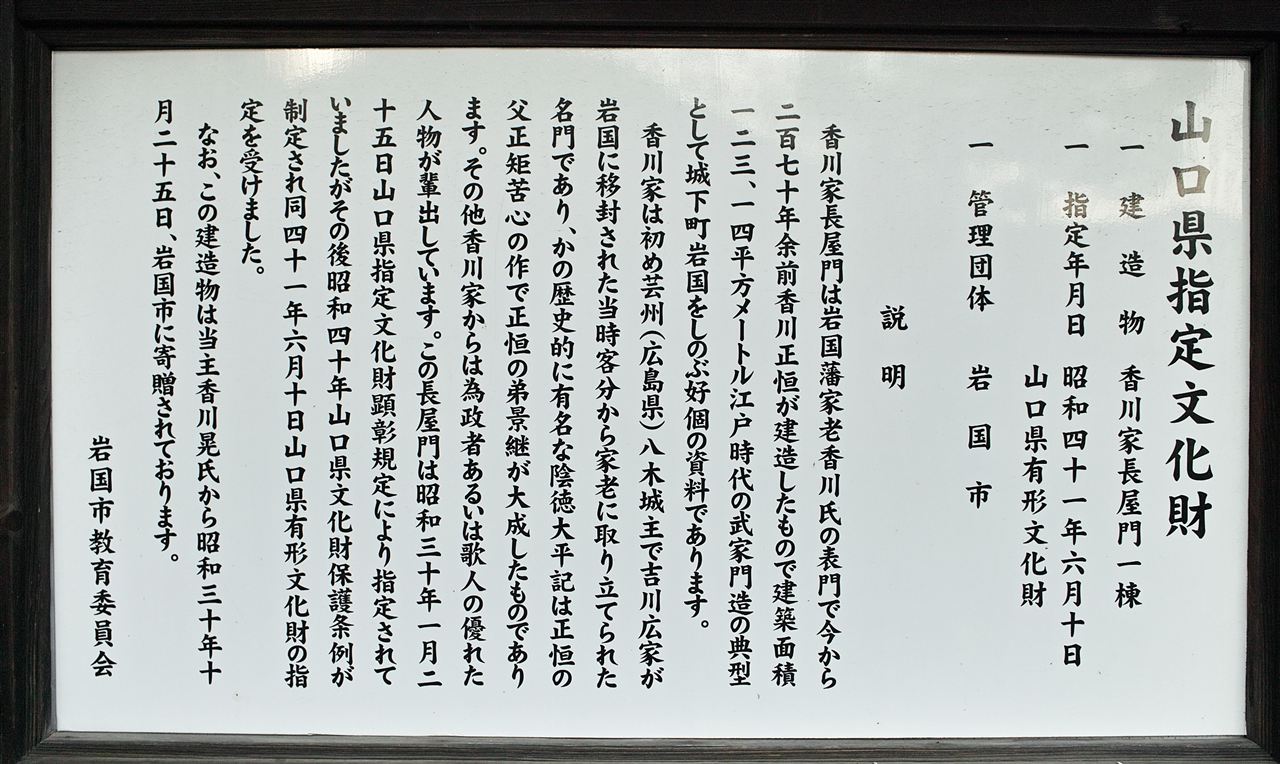 山口県指定文化財
一 建造物 香川家長屋門一棟
一 指定年月日 昭和四十一年六月十日
山口県有形文化財
一 管理団体 岩国市
説明
香川家長屋門は岩国藩家老香川氏の表門で今から
二百七十年余前香川正恒が建造したもので建築面積
一二三、一四平方メートル江戸時代の武家門造の典型
として城下町岩国をしのぶ好個の資料であります。
香川家は初め芸州（広島県）八木城主で吉川広家が
岩国に移封された当時客分から家老に取り立てられた
名門であり、かの歴史的に有名な陰徳太平記は正恒の
父正矩苦心の作で正恒の弟景継が大成したものであり
ます。その他香川家からは為政者あるいは歌人の優れた
人物が輩出しています。この長屋門は昭和三十年一月二
十五日山口県指定文化財顕彰規定により指定されて
いましたがその後昭和四十年山口県文化財保護条例が
制定され同四十一年六月十日山口県有形文化財の指
定を受けました。
なお、この建造物は当主香川晃氏から昭和三十年十
月二十五日、岩国市に寄贈されております。
岩国市教育委員会